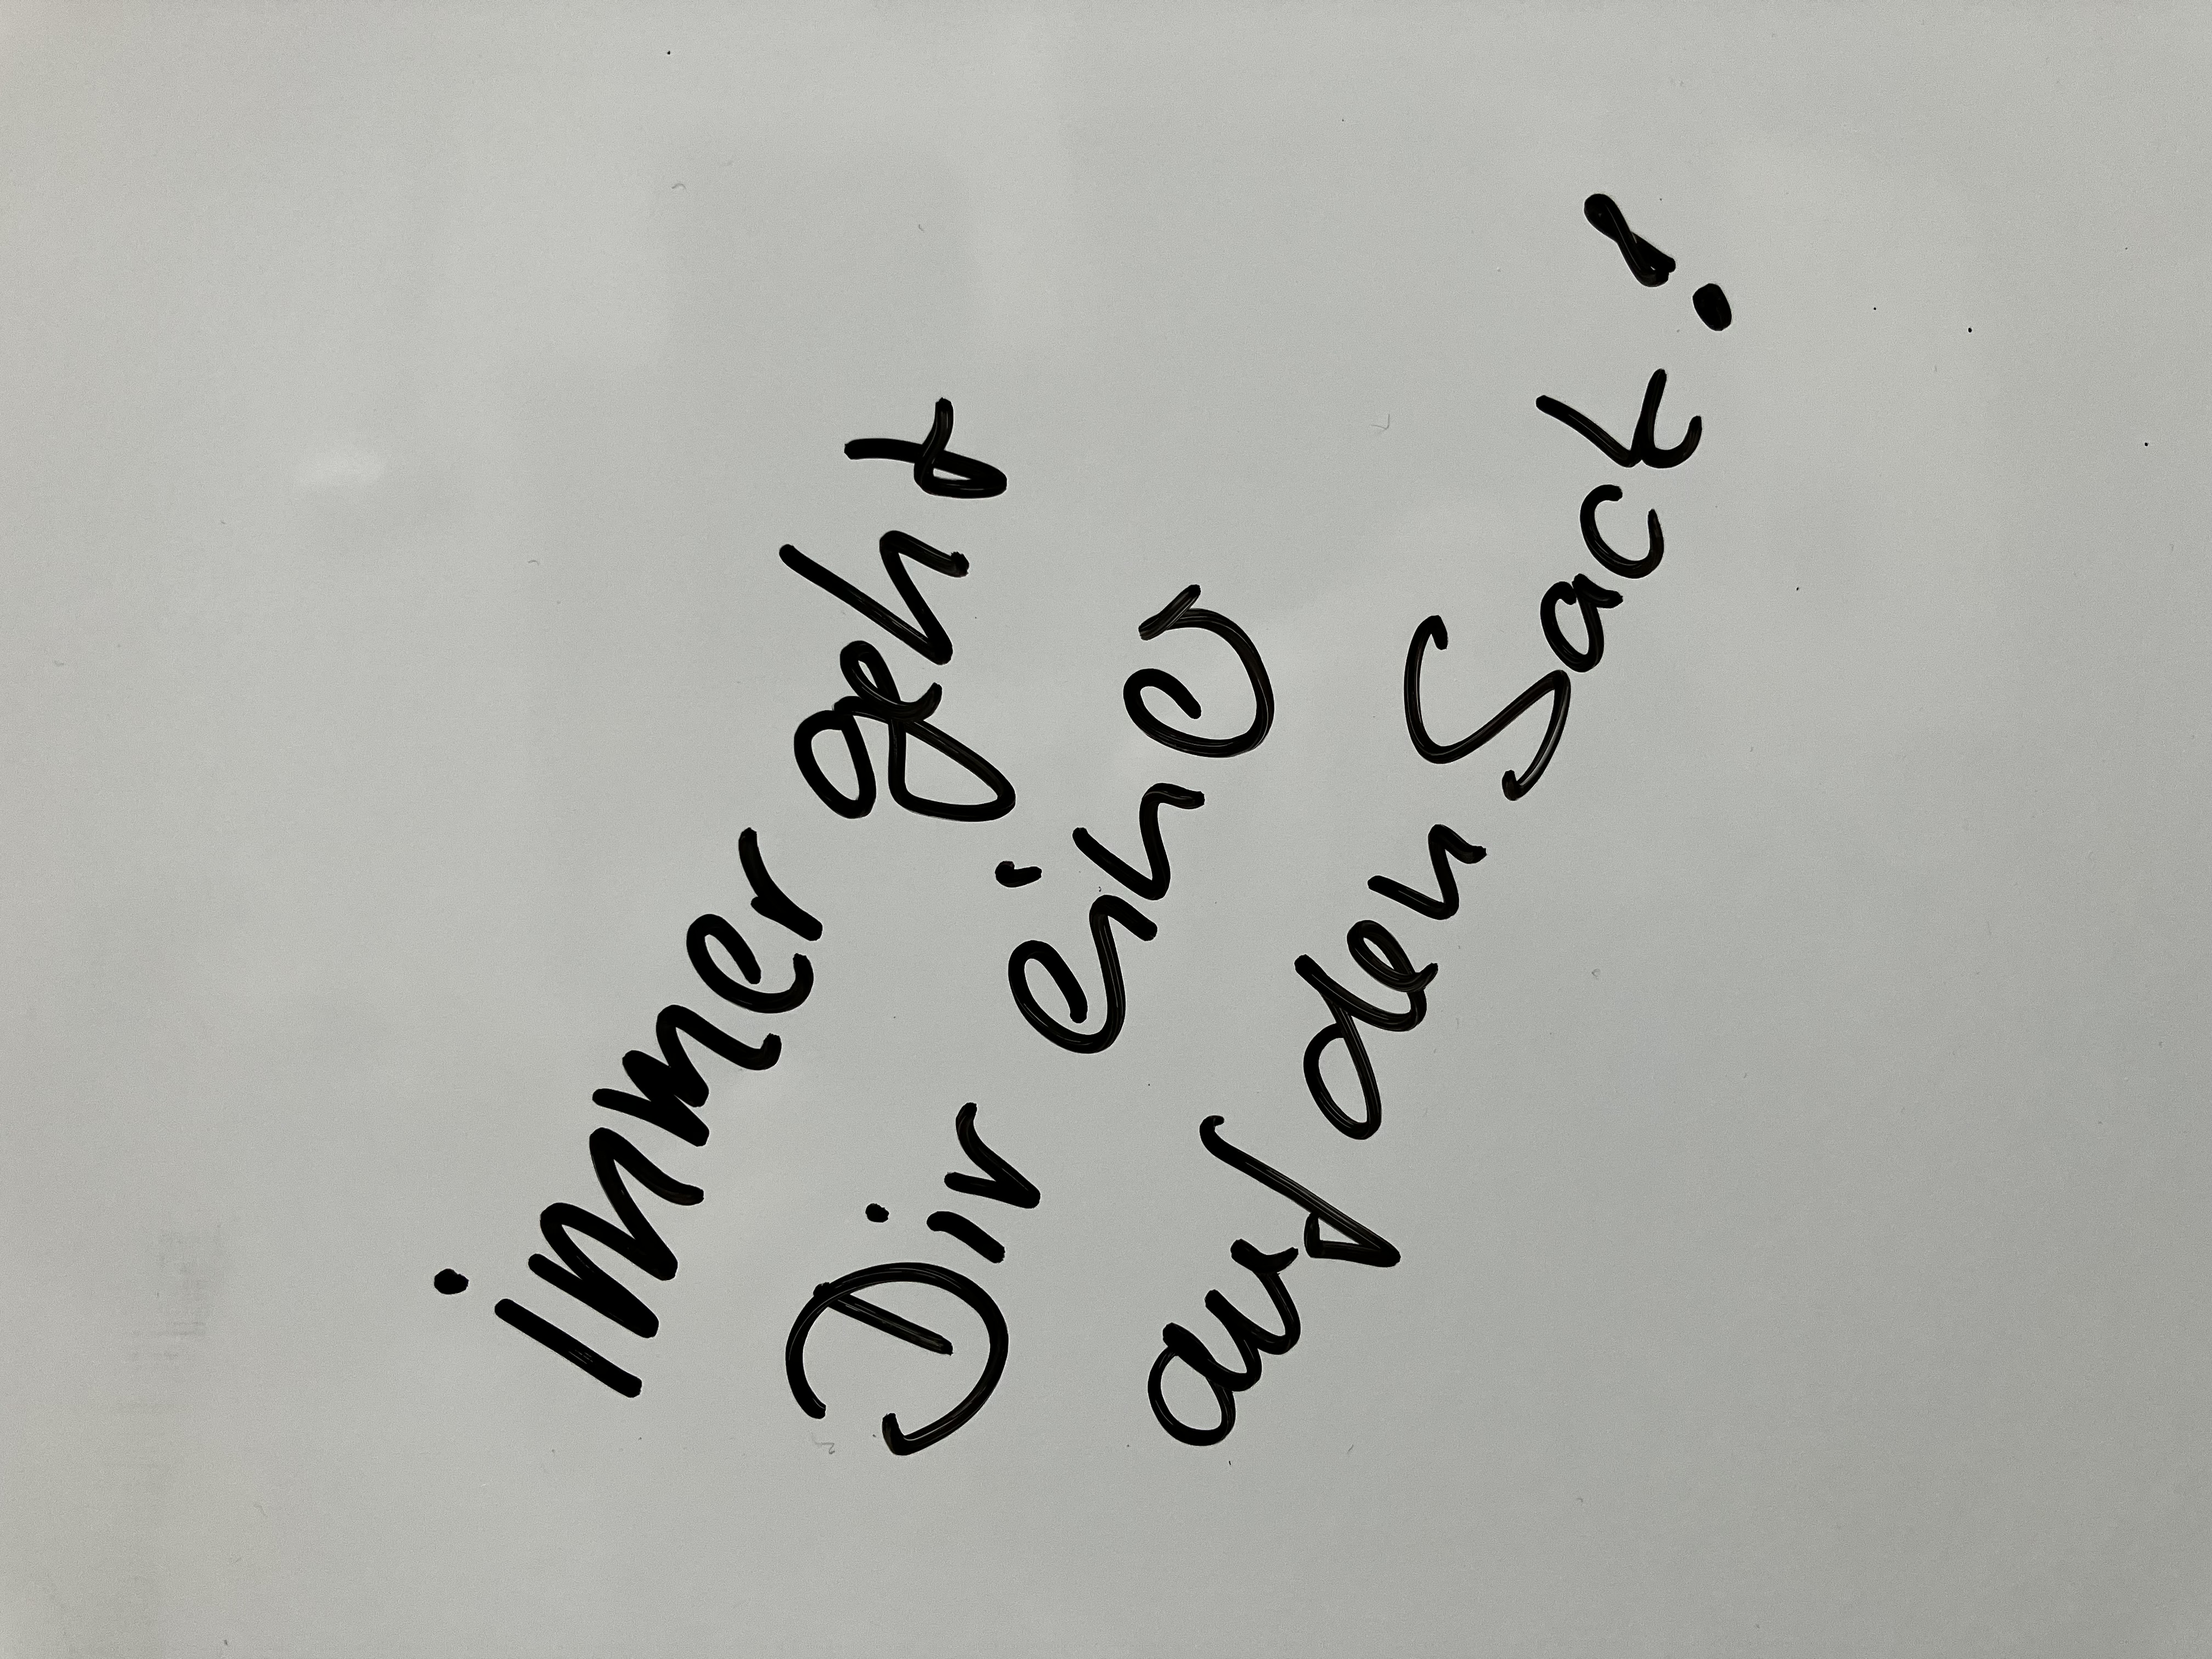 immer geht
Dir einer
auf den Sack!